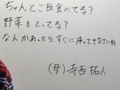 ちゃんとご飯食べてる?
野菜もとってる?
なんかあったら、すぐに帰ってきなさいね
(母) 寺西 拓人